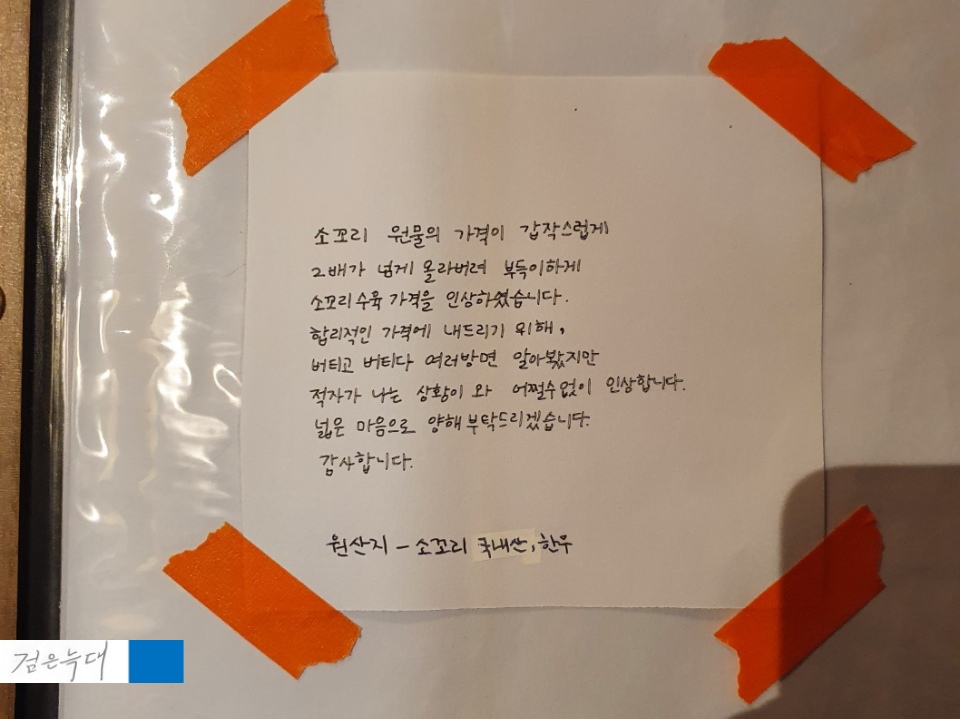 소꼬리 원물의 가격이 갑작스럽게
2배가 넘게 올라버려 부득이하게
소꼬리수육 가격을 인상하였습니다.
합리적인 가격에 내드리기 위해,
버티고 버티다 여러방면 알아봤지만
적자가 나는 상황이 와 어쩔수없이 인상합니다.
넓은 마음으로 양해부탁드리겠습니다.
감사합니다.
원산지 - 소꼬리 국내산, 한우
검은늑대